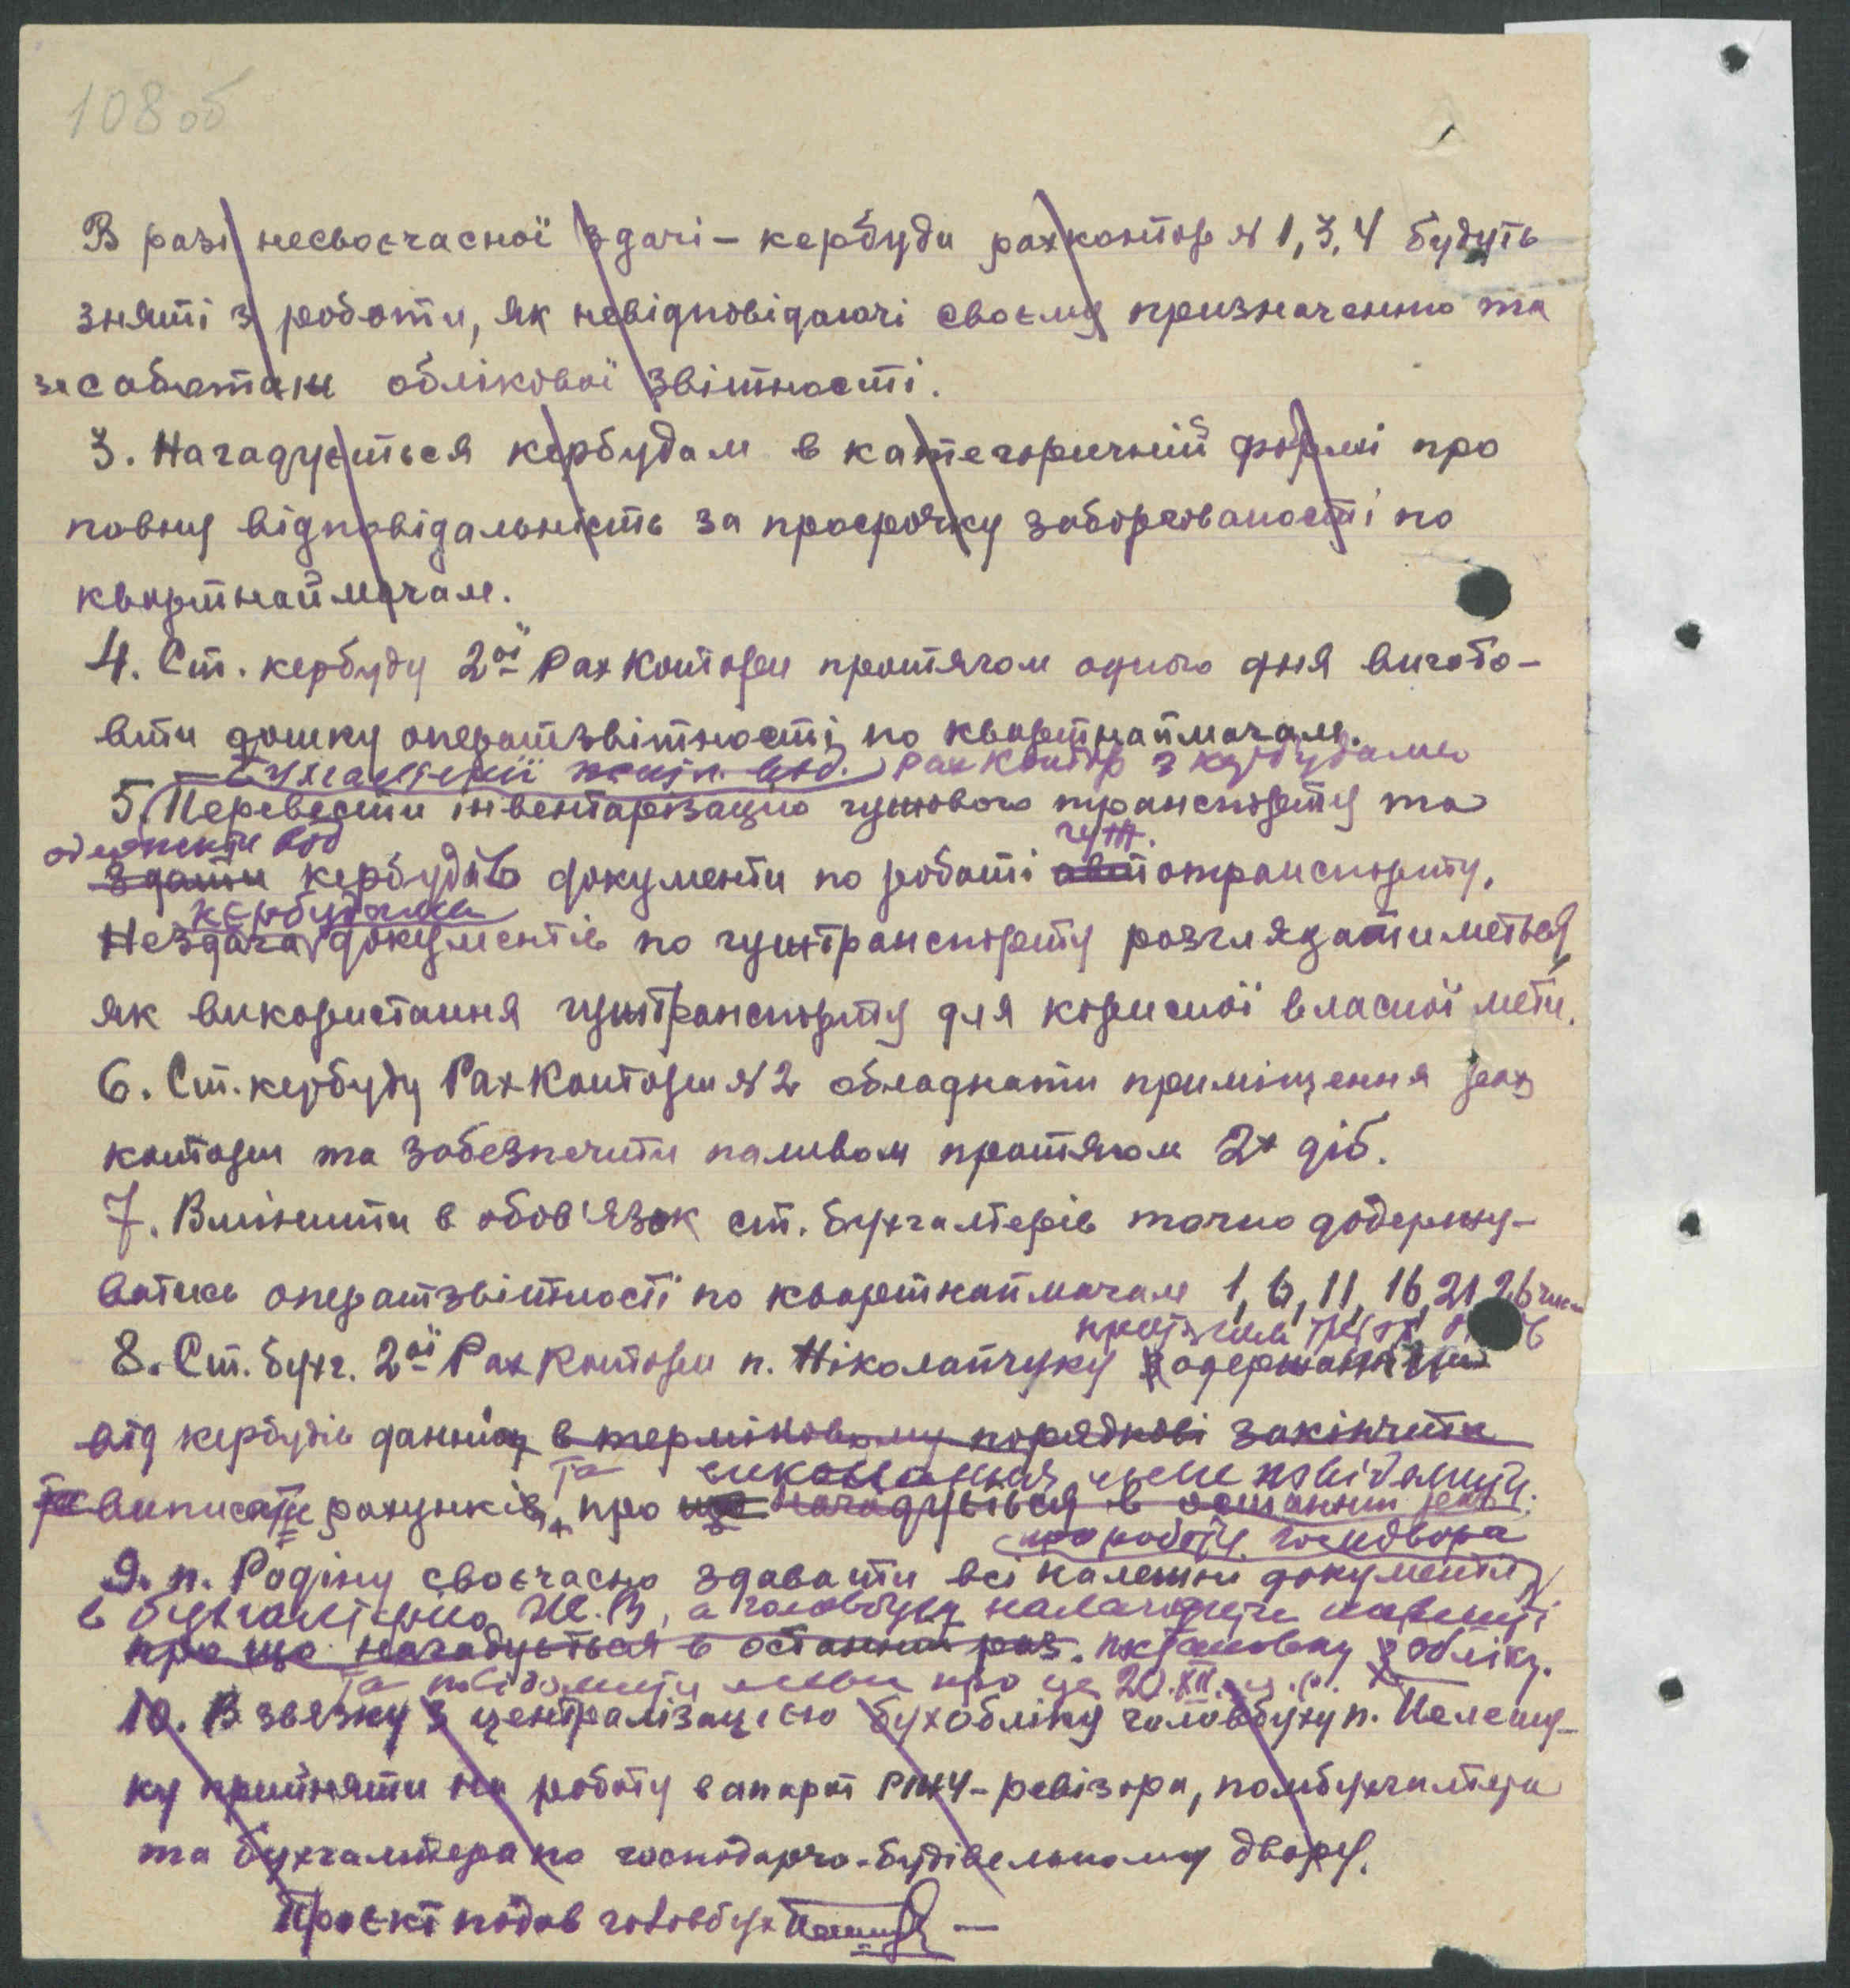 108 об
В разі несвоєчасної здачі – кербуди рахконтор № 1, 3, 4 будуть
зняті з роботи, як невідповідаючі своєму призначенню та
за саботаж облікової звітности.
3. Нагадується кербудам в категоричній формі про
повну відповідальність за просрочку заборгованості по
квартнаймачам.
4. Ст. кербуду 2ої РахКонтори протягом одного дня вигото-
вити дошку оператзвітности по квартнаймачам.
Бухгалтерії РахКонтор з кербудами
5. Перевести інвентарізацію гужового транспорту та
одержати від гуж.
здати кербудів документи по роботі автотранспорту.
кербудами
Нездача документів по гужтранспорту розглядатиметься
як використання гужтранспорту для корисної власної мети.
6. Ст. кербуду РахКонтори № 2 обладнати приміщення рах
контори та забезпечити паливом протягом 2х діб.
7. Вмінити в обов'язок ст. бухгалтерів точно додержу-
ватись оператзвітності по квартнаймачам 1, 6, 11, 16, 21, 26 числ
протягом
8. Ст. бухг. 2ої РахКонтори п. Ніколайчуку одержання
від кербудів данних в терміновому порядкові закінчити
та виконання мене повідомити.
та виписати рахунків, про що нагадується в останній раз.
по роботі госпдвора
9. п. Родіну своєчасно здавати всі належни документи
в бухгалтерію Ж.В, а головбуху налагодити
про що нагадується в останній раз. постановку обліку.
та повідомити мені про це 20.XII. ц.р.
10. В звязку з централізацією бухобліку головбуху п. Пелешу-
ку прийняти на роботу в апарат РЖУ – ревізора, помбухгалтера
та бухгалтера по господарчо-будівельному двору.
Проєкт подав головбух